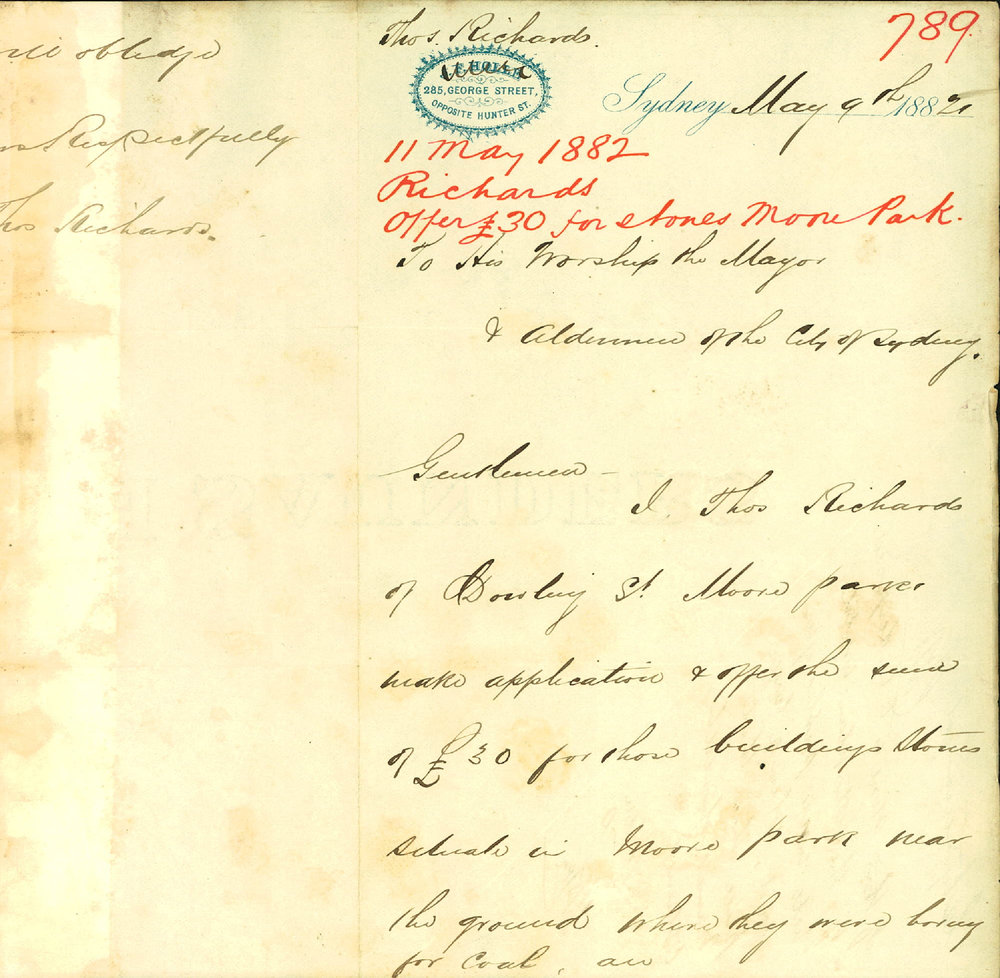 obledge
Respectfully
Thos Richards.
Thos. Richards.
285, GEORGE STREET,
OPPOSITE HUNTER ST.
789
Sydney May 9th 1882
11 May 1882
Richards
Offer £30 for stones Moore Park.
To His Worship the Mayor
& Aldermen of the City of Sydney.
Gentlemen –
I. Thos Richards
of Dowling St. Moore park
make application & offer the sum
of £30 for those buildings Stones
situate in Moore park near
the ground where they were boring
for Coal, an